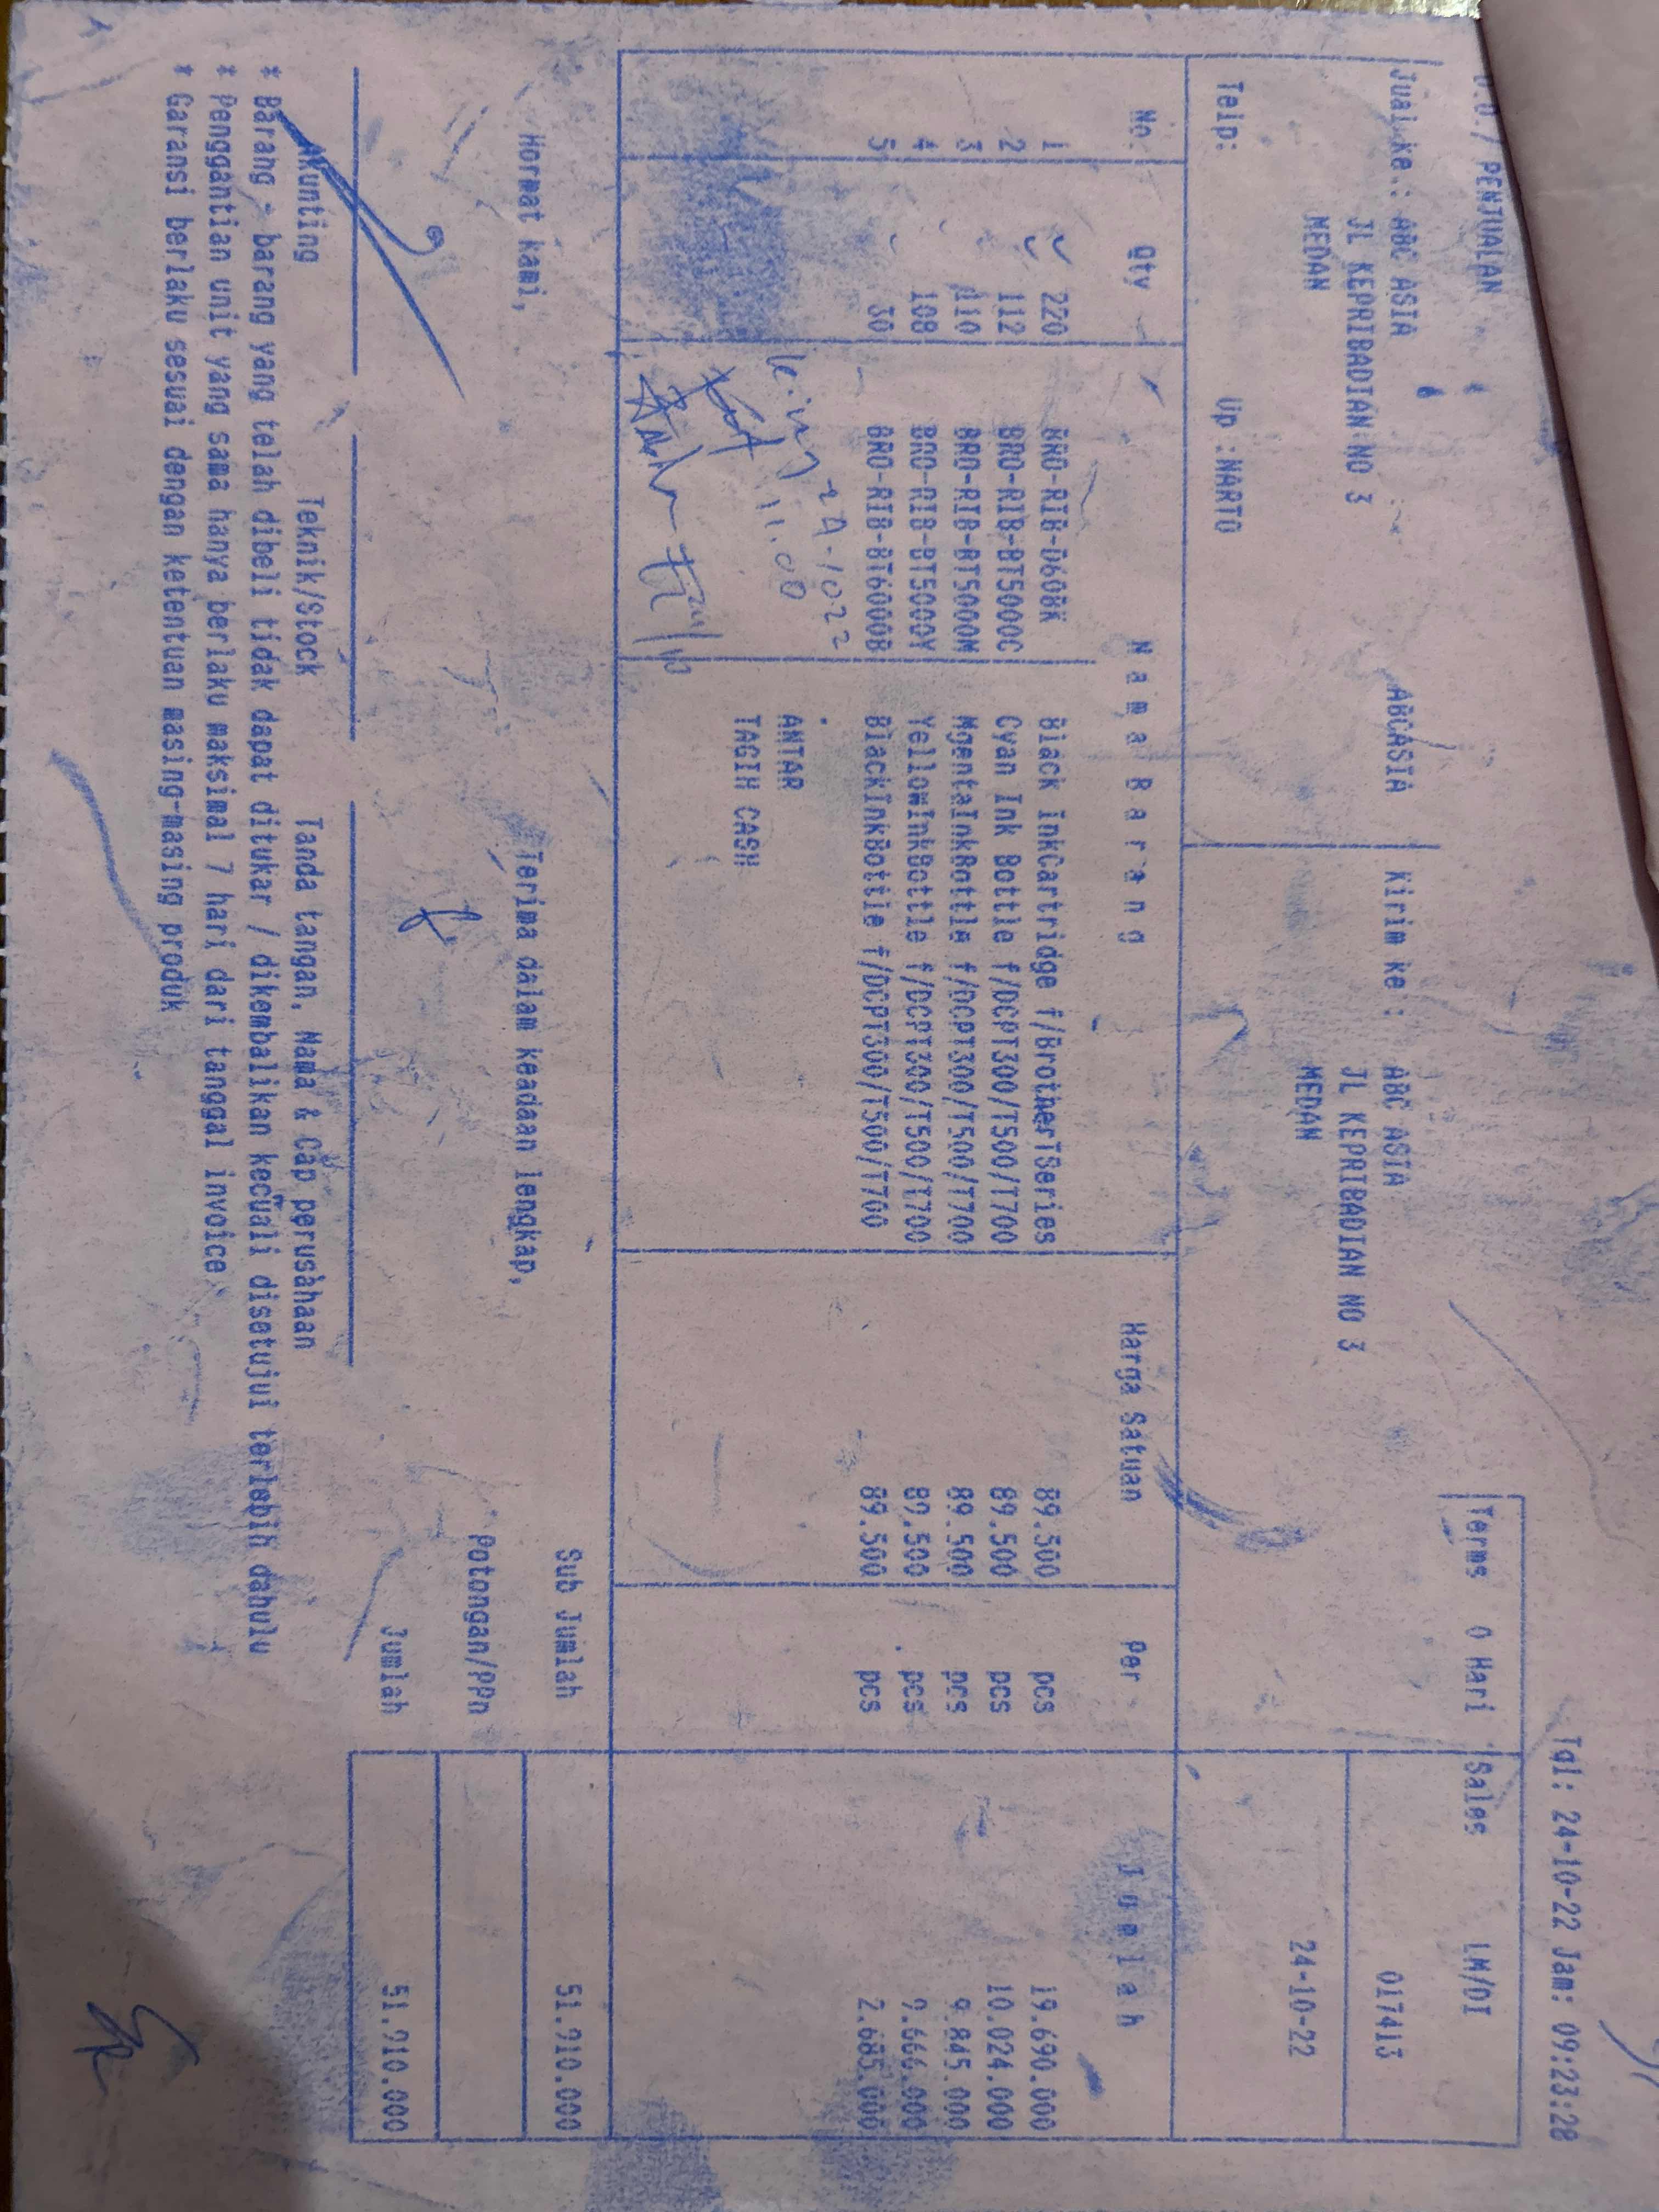 PENJUALAN
Tgl: 24-10-22 Jam: 09:23:28
Terms 0 Hari Sales LM/DI
Jual ke : ABC ASIA ABCASIA Kirim ke : ABC ASIA 017413
JL KEPRIBADIAN NO 3 JL KEPRIBADIAN NO 3
MEDAN MEDAN 24-10-22
Telp: Up :NARTO
No Qty N a m a B a r a n g Harga Satuan Per J u m l a h
1 220 BRO-RIB-D60BK Black InkCartridge f/BrotherTSeries 89.500 pcs 19.690.000
2 112 BRO-RIB-BT5000C Cyan Ink Bottle f/DCPT300/T500/T700 89.500 pcs 10.024.000
3 110 BRO-RIB-BT5000M MgentaInkBottle f/DCPT300/T500/T700 89.500 pcs 9.845.000
4 108 BRO-RIB-BT5000Y YellowInkBottle f/DCPT300/T500/T700 89.500 pcs 9.666.000
5 30 BRO-RIB-BT6000B BlackInkBottle f/DCPT300/T500/T700 89.500 pcs 2.685.000
.
ANTAR
11.00
TAGIH CASH
Sub Jumlah 51.910.000
Hormat kami, Terima dalam keadaan lengkap,
Potongan/PPn
Jumlah 51.910.000
Akunting Teknik/Stock Tanda tangan, Nama & Cap perusahaan
* Barang - barang yang telah dibeli tidak dapat ditukar / dikembalikan kecuali disetujui terlebih dahulu
* Penggantian unit yang sama hanya berlaku maksimal 7 hari dari tanggal invoice
* Garansi berlaku sesuai dengan ketentuan masing-masing produk